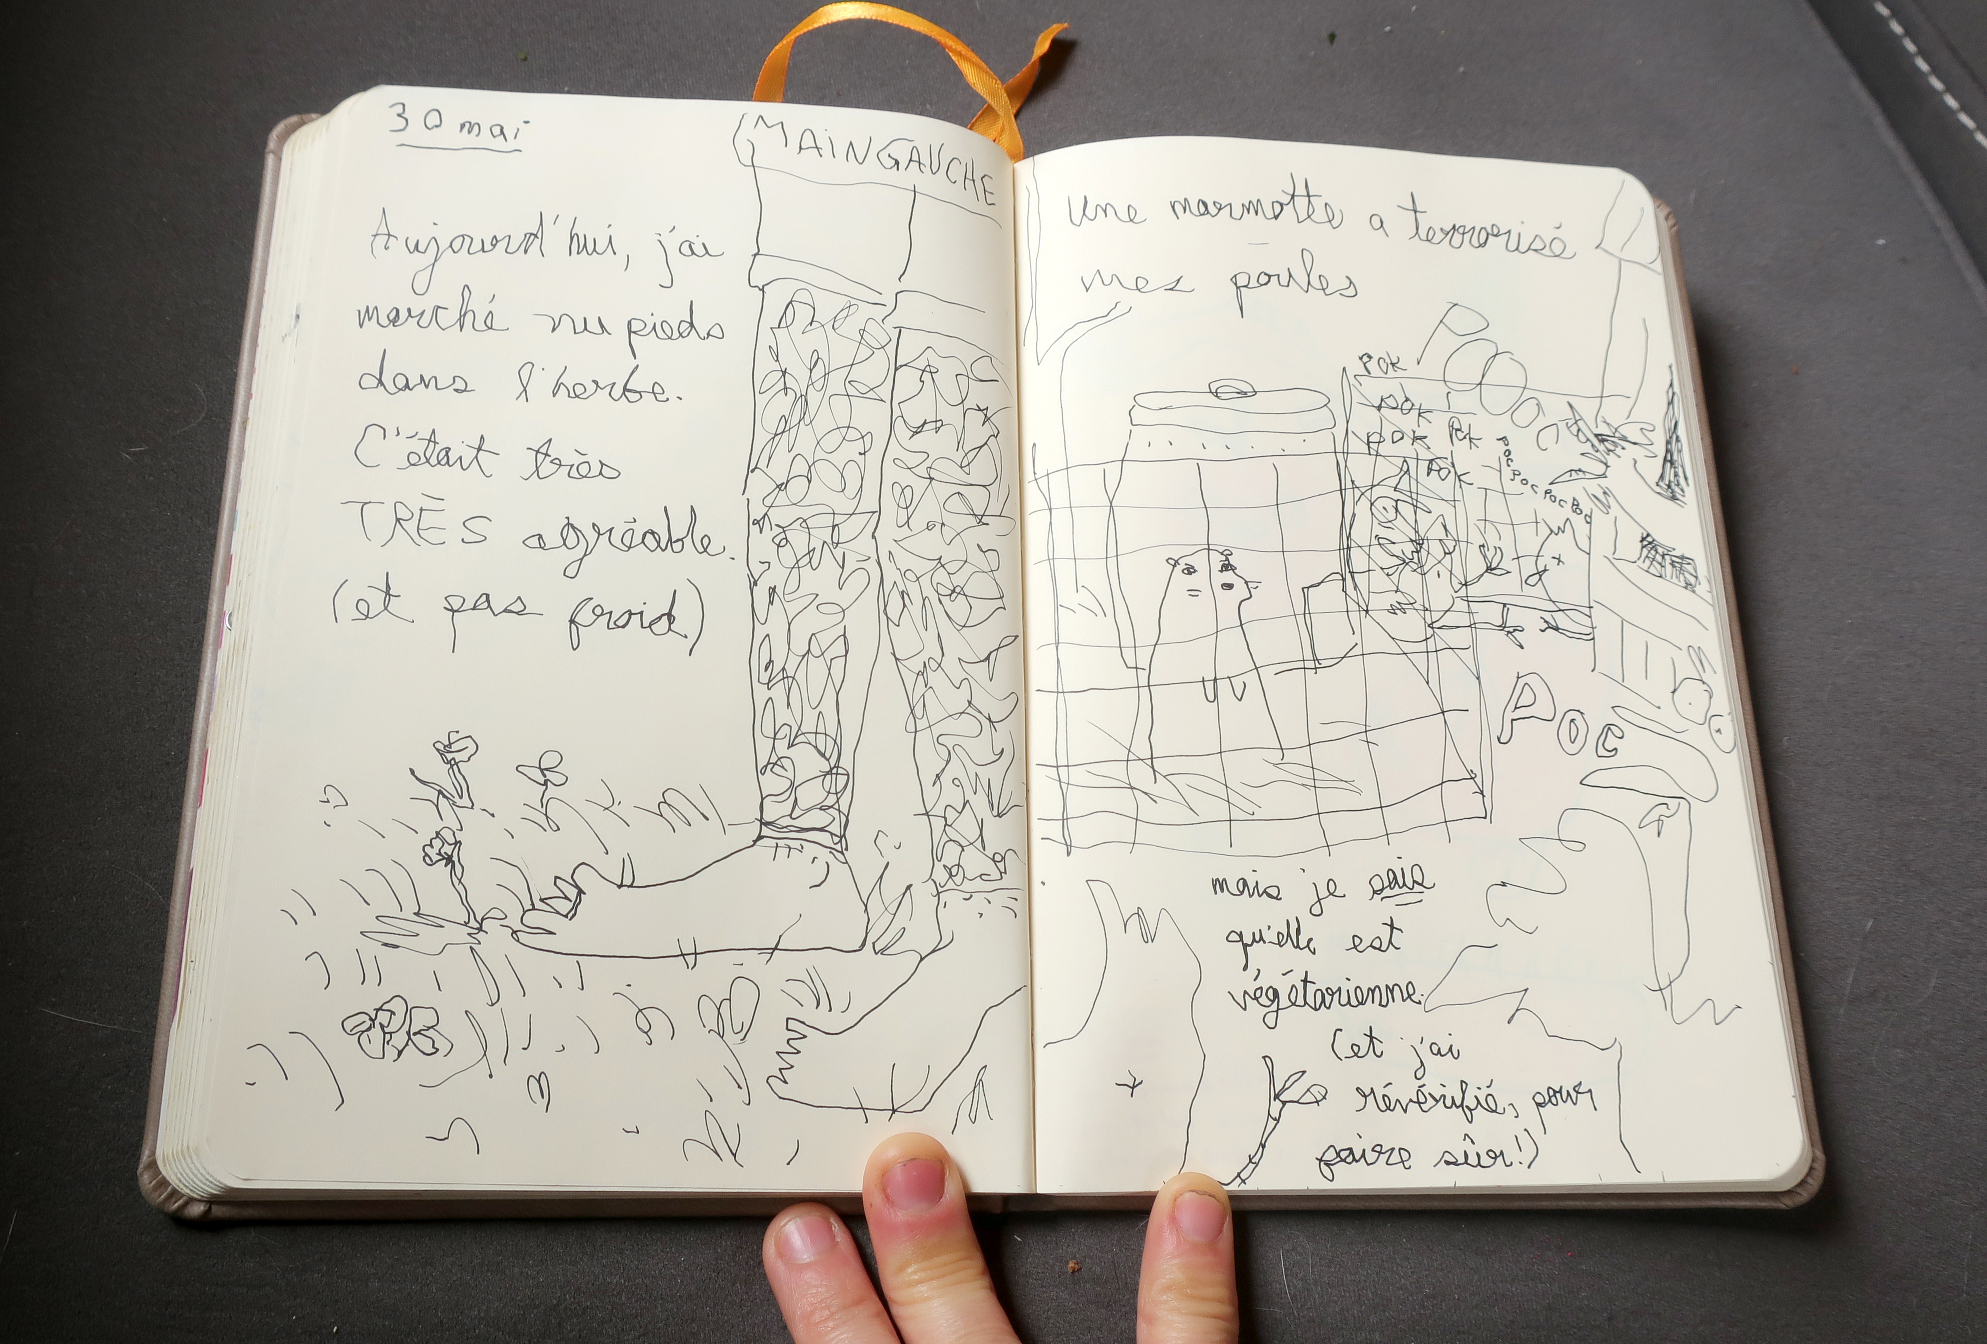 30 mai
(MAIN GAUCHE
Aujourd'hui, j'ai
marché nu pieds
dans l'herbe.
C'était très
TRÈS agréable.
(et pas froid)
Une marmotte a terrorisé
mes poules
POOOC
POK
POK
POK POK
POK
POCPOCPOCPOC
POC
mais je sais
qu'elle est
végétarienne.
(et j'ai
révérifié, pour
faire sûr!)